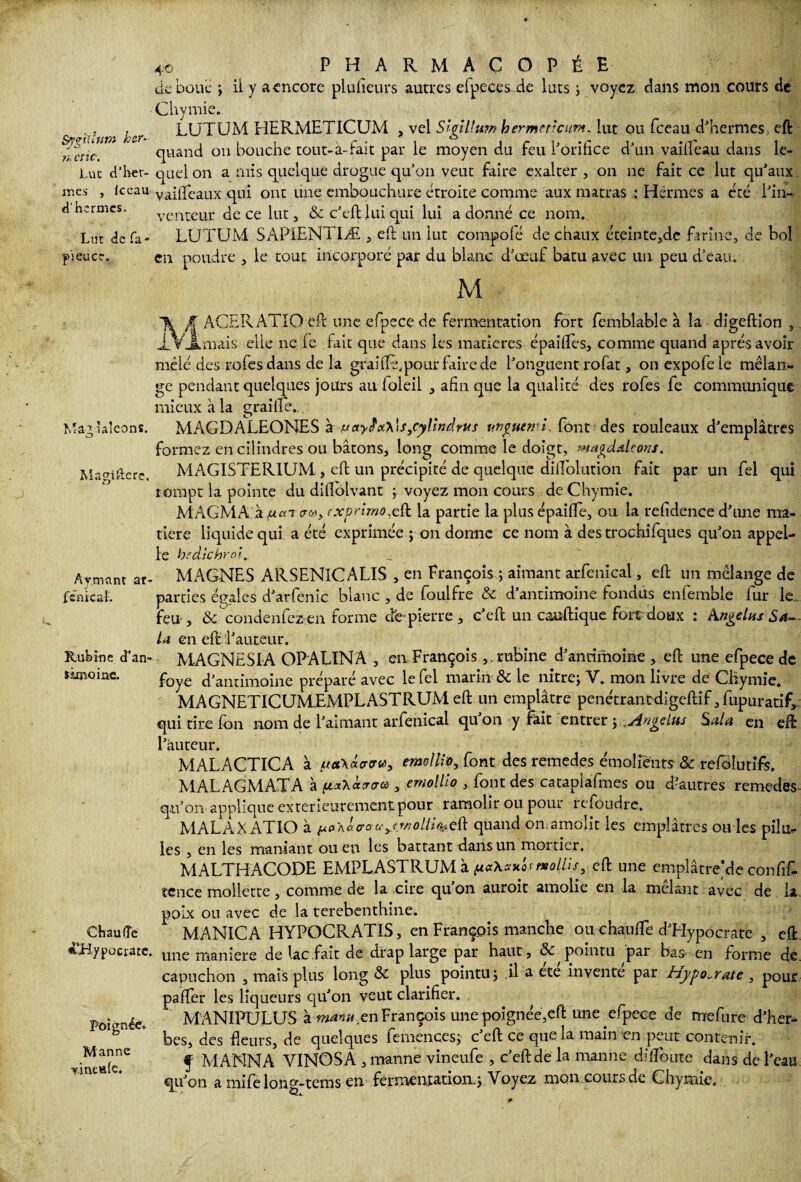 40 PHARMACOPÉE
de bouë ; il y a encore plusieurs autres especes de luts ; voyez dans mon cours de
Chymie.
Sygillum her-
metic.
Lut d'her-
mes , sceau
d'hermes.
LUTUM HERMETICUM , vel Sigillum hermeticum. lut ou sceau d'hermes, est
quand on bouche tout-à-fait par le moyen du feu l'orifice d'un vaisseau dans le-
quel on a mis quelque drogue qu'on veut faire exalter , on ne fait ce lut qu'aux
vaisseaux qui ont une embouchure étroite comme aux matras : Hermes a été l'in-
venteur de ce lut , & c'est lui qui lui a donné ce nom.
Lut de sa-
pience.
LUTUM SAPIENTIÆ , est un lut composé de chaux éteinte,de farine, de bol
en poudre , le tout incorporé par du blanc d'œuf batu avec un peu d'eau.
M
MACERATIO est une espece de fermentation fort semblable à la digestion ,
mais elle ne se fait que dans les matieres épaisses, comme quand aprés avoir
mêlé des roses dans de la graisse,pour faire de l'onguent rosat , on expose le mêlan-
ge pendant quelques jours au soleil , afin que la qualité des roses se communique
mieux à la graisse.
Magdaleons.
MAGDALEONES à μαγδαλὶς,cylindrus unguenti. sont des rouleaux d'emplâtres
formez en cilindres ou bâtons, long comme le doigt, magdaleons.
Magistere.
MAGISTERIUM , est un précipité de quelque dissolution fait par un sel qui
rompt la pointe du dissolvant ; voyez mon cours de Chymie.
MAGMA à μαπσω, exprimo.est la partie la plus épaisse, ou la residence d'une ma-
tiere liquide qui a été exprimée ; on donne ce nom à des trochisques qu'on appel-
le hedichroi.
Aymant ar-
senical.
MAGNES ARSENICALIS , en François ; aimant arsenical , est un mélange de
parties égales d'arsenic blanc , de soulfre & d'antimoine fondus ensemble sur le
feu , & condensez en forme de pierre , c'est un caustique fort doux : Angelus Sa-
la en est l'auteur.
Rubine d'an-
timoine.
MAGNESIA OPALINA , en François , rubine d'antimoine , est une espece de
foye d'antimoine préparé avec le sel marin & le nitre; V. mon livre de Chymie.
MAGNETICUM EMPLASTRUM est un emplâtre penétrant digestif , supuratif,
qui tire son nom de l'aimant arsenical qu'on y fait entrer ; Angelus Sala en est
l'auteur.
MALACTICA à μαλάσσω, emollio, sont des remedes émoliens & resolutifs.
MALAGMATA à μαλάσσω , emollio , sont des cataplasmes ou d'autres remedes
qu'on applique exterieurement pour ramolir ou pour resoudre.
MALAXATIO à μαλάσσω,emollio,est quand on amolit les emplâtres ou les pilu-
les , en les maniant ou en les battant dans un mortier.
MALTHACODE EMPLASTRUM à μαλακὸς mollis, est une emplâtre de consis-
tence mollette , comme de la cire qu'on auroit amolie en la mêlant avec de la
poix ou avec de la terebenthine.
Chausse
d'Hypocrate.
MANICA HYPOCRATIS, en François manche ou chausse d'Hypocrate , est
une maniere de sac fait de drap large par haut , & pointu par bas en forme de
capuchon , mais plus long & plus pointu ; il a été inventé par Hypocrate , pour
passer les liqueurs qu'on veut clarifier.
Poignée.
MANIPULUS à manu.en François une poignée,est une espece de mesure d'her-
bes, des fleurs, de quelques semences; c'est ce que la main en peut contenir.
Manne
vineuse.
¶ MANNA VINOSA , manne vineuse , c'est de la manne dissoute dans de l'eau
qu'on a mise long-tems en fermentation; Voyez mon cours de Chymie.